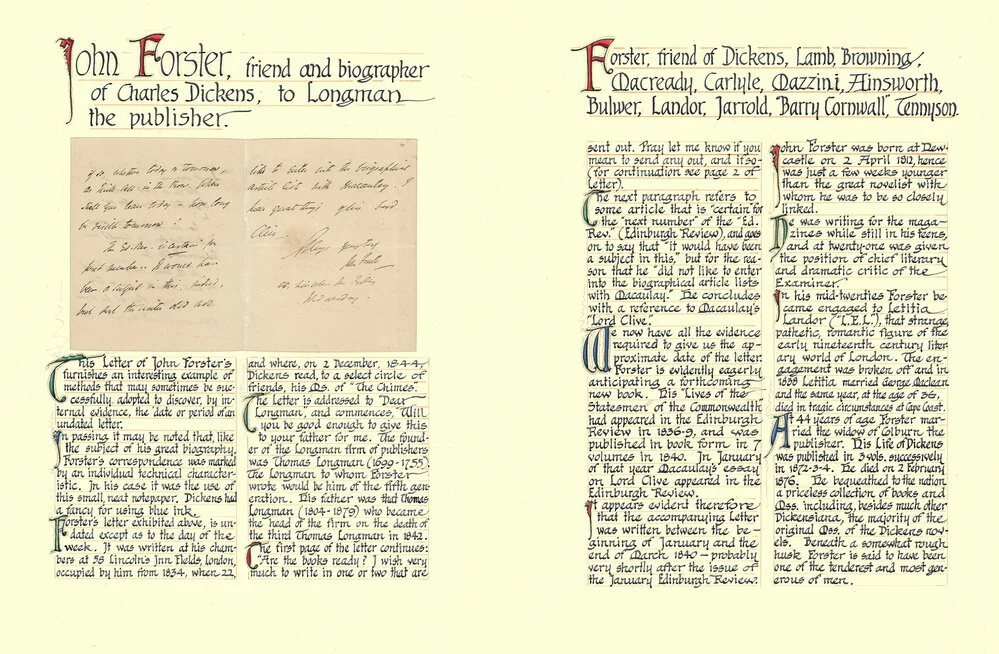 John Forster, friend and biographer
of Charles Dickens, to Longman
the publisher.
of, whether today or tomorrow,
shall you leave today - how long
be beside tomorrow?
The Ed. Rev. is certain for
next number.. It would have
been a subject in this, indeed.
but that the writer did not
like to enter into the biographical
article list with Macaulay.
Clive.
John Forster
58 Lincoln's Inn Fields
Wednesday.
This Letter of John Forster's
furnishes an interesting example of
methods that may sometimes be suc-
cessfully adopted to discover, by in-
ternal evidence, the date or period of an
undated letter.
In passing it may be noted that, like
the subject of his great biography,
Forster's correspondence was marked
by an individual technical character-
istic. In his case it was the use of
this small, neat notepaper. Dickens had
a fancy for using blue ink.
Forster's letter exhibited above, is un-
dated except as to the day of the
week. It was written at his cham-
bers at 58 Lincoln's Inn Fields, London,
occupied by him from 1834, when 22,
and where, on 2 December, 1844,
Dickens read, to a select circle of
friends, his Ms. of "The Chimes".
The letter is addressed to "Dear
Longman, and commences, "Will
you be good enough to give this
to your father for me. The found-
er of the Longman firm of publishers
was Thomas Longman (1699-1755).
The Longman to whom Forster
wrote would be him of the fifth gen-
eration. His father was that Thomas
Longman (1804-1879) who became
the head of the firm on the death of
the third Thomas Longman in 1842.
The first page of the letter continues:
"Are the books ready? I wish very
much to write in one or two that are
Forster, friend of Dickens, Lamb, Browning,
Macready, Carlyle, Mazzini, Ainsworth,
Bulwer, Landor, Jarrold, "Barry Cornwall," Tennyson.
sent out. Pray let me know if you
mean to send any out, and if so-
(for continuation see page 2 of
letter).
The next paragraph refers to
some article that is "certain" for
the "next number" of the "Ed.
Rev." (Edinburgh Review), and goes
on to say that "it would have been
a subject in this," but for the rea-
son that he "did not like to enter
into the biographical article lists
with Macaulay." He concludes
with a reference to Macaulay's
"Lord Clive."
We now have all the evidence
required to give us the ap-
proximate date of the letter.
Forster is evidently eagerly
anticipating a forthcoming
new book. His "Lives of the
Statesmen of the Commonwealth"
had appeared in the Edinburgh
Review in 1836-9, and was
published in book form in 7
volumes in 1840. In January
of that year Macaulay's essay
on Lord Clive appeared in the
Edinburgh Review.
It appears evident therefore
that the accompanying Letter
was written between the be-
ginning of January and the
end of March 1840 - probably
very shortly after the issue of
the January Edinburgh Review.
John Forster was born at New-
castle on 2 April 1812, hence
was just a few weeks younger
than the great novelist with
whom he was to be so closely
linked.
He was writing for the maga-
zines while still in his teens,
and at twenty-one was given
the position of chief literary
and dramatic critic of the
Examiner.
In his mid-twenties Forster be-
came engaged to Letitia
Landor ("L.E.L."), that strange,
pathetic, romantic figure of the
early nineteenth century liter-
ary world of London. The en-
gagement was broken off and in
1838 Letitia married George Maclean
and the same year, at the age of 36,
died in tragic circumstances at Cape Coast.
At 44 years of age Forster mar-
ried the widow of Colburn the
publisher. His Life of Dickens
was published in 3 vols. successively
in 1872-3-4. He died on 2 February
1876. He bequeathed to the nation
a priceless collection of books and
Mss. including, besides much other
Dickensiana, the majority of the
original Mss. of the Dickens nov-
els. Beneath a somewhat rough
husk Forster is said to have been
one of the tenderest and most gen-
erous of men.